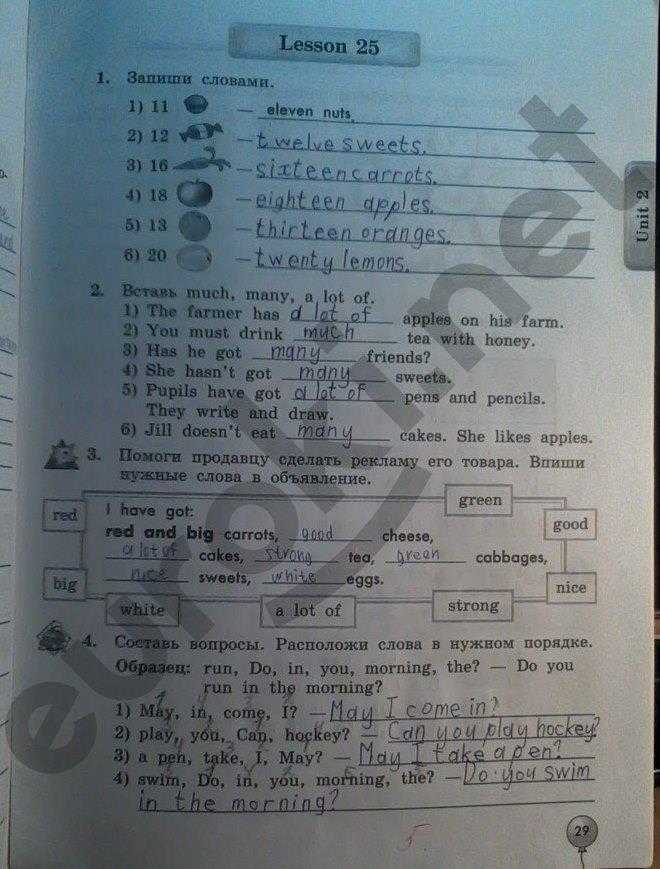 Lesson 25
1. Запиши словами.
1) 11 — eleven nuts.
2) 12 — twelve sweets.
3) 16 — sixteen carrots.
4) 18 — eighteen apples.
5) 13 — thirteen oranges.
6) 20 — twenty lemons.
Unit 2
2. Вставь much, many, a lot of.
1) The farmer has a lot of apples on his farm.
2) You must drink much tea with honey.
3) Has he got many friends?
4) She hasn't got many sweets.
5) Pupils have got a lot of pens and pencils.
They write and draw.
6) Jill doesn't eat many cakes. She likes apples.
3. Помоги продавцу сделать рекламу его товара. Впиши
нужные слова в объявление.
green
red
good
I have got:
red and big carrots, good cheese,
a lot of cakes, strong tea, green cabbages,
nice sweets, white eggs.
big
nice
white
a lot of
strong
4. Составь вопросы. Расположи слова в нужном порядке.
Образец: run, Do, in, you, morning, the? — Do you
run in the morning?
1) May, in, come, I? — May I come in?
2) play, you, Can, hockey? — Can you play hockey?
3) a pen, take, I, May? — May I take a pen?
4) swim, Do, in, you, morning, the? — Do you swim
in the morning?
5.
29
euroki.net